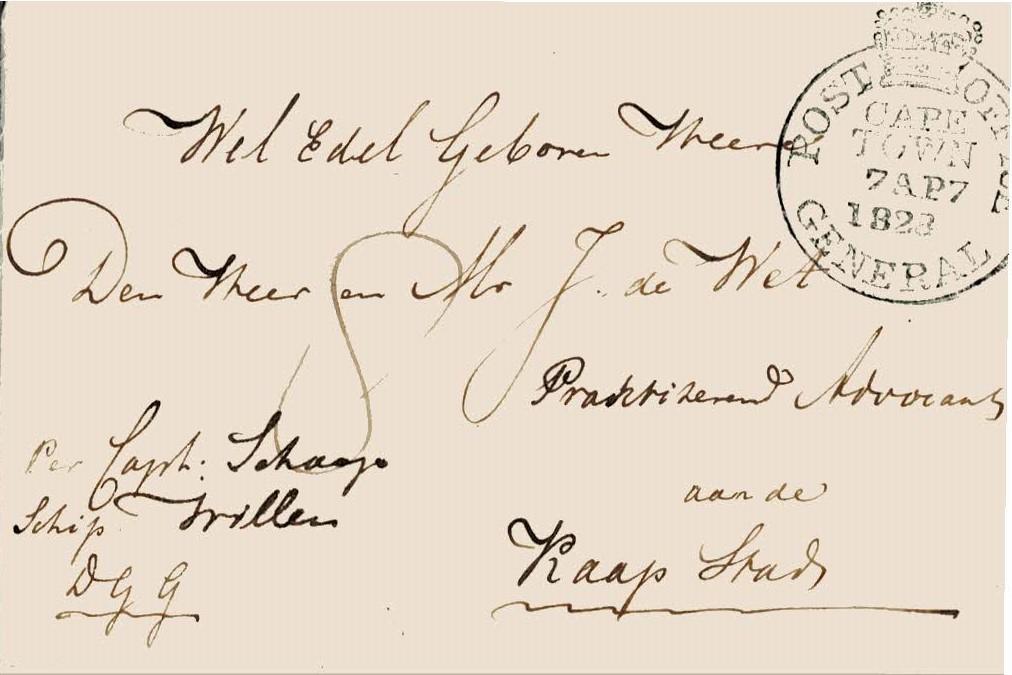 Wel Edel Geboren Heere
Den Heer en Mr J. de Wet
Praktiserend Advocant
aan de
Kaap Stad
Per Capt: Schaap
Schip Willem
DGG
8
POST OFFICE
CAPE
TOWN
7AP7
1823
GENERAL